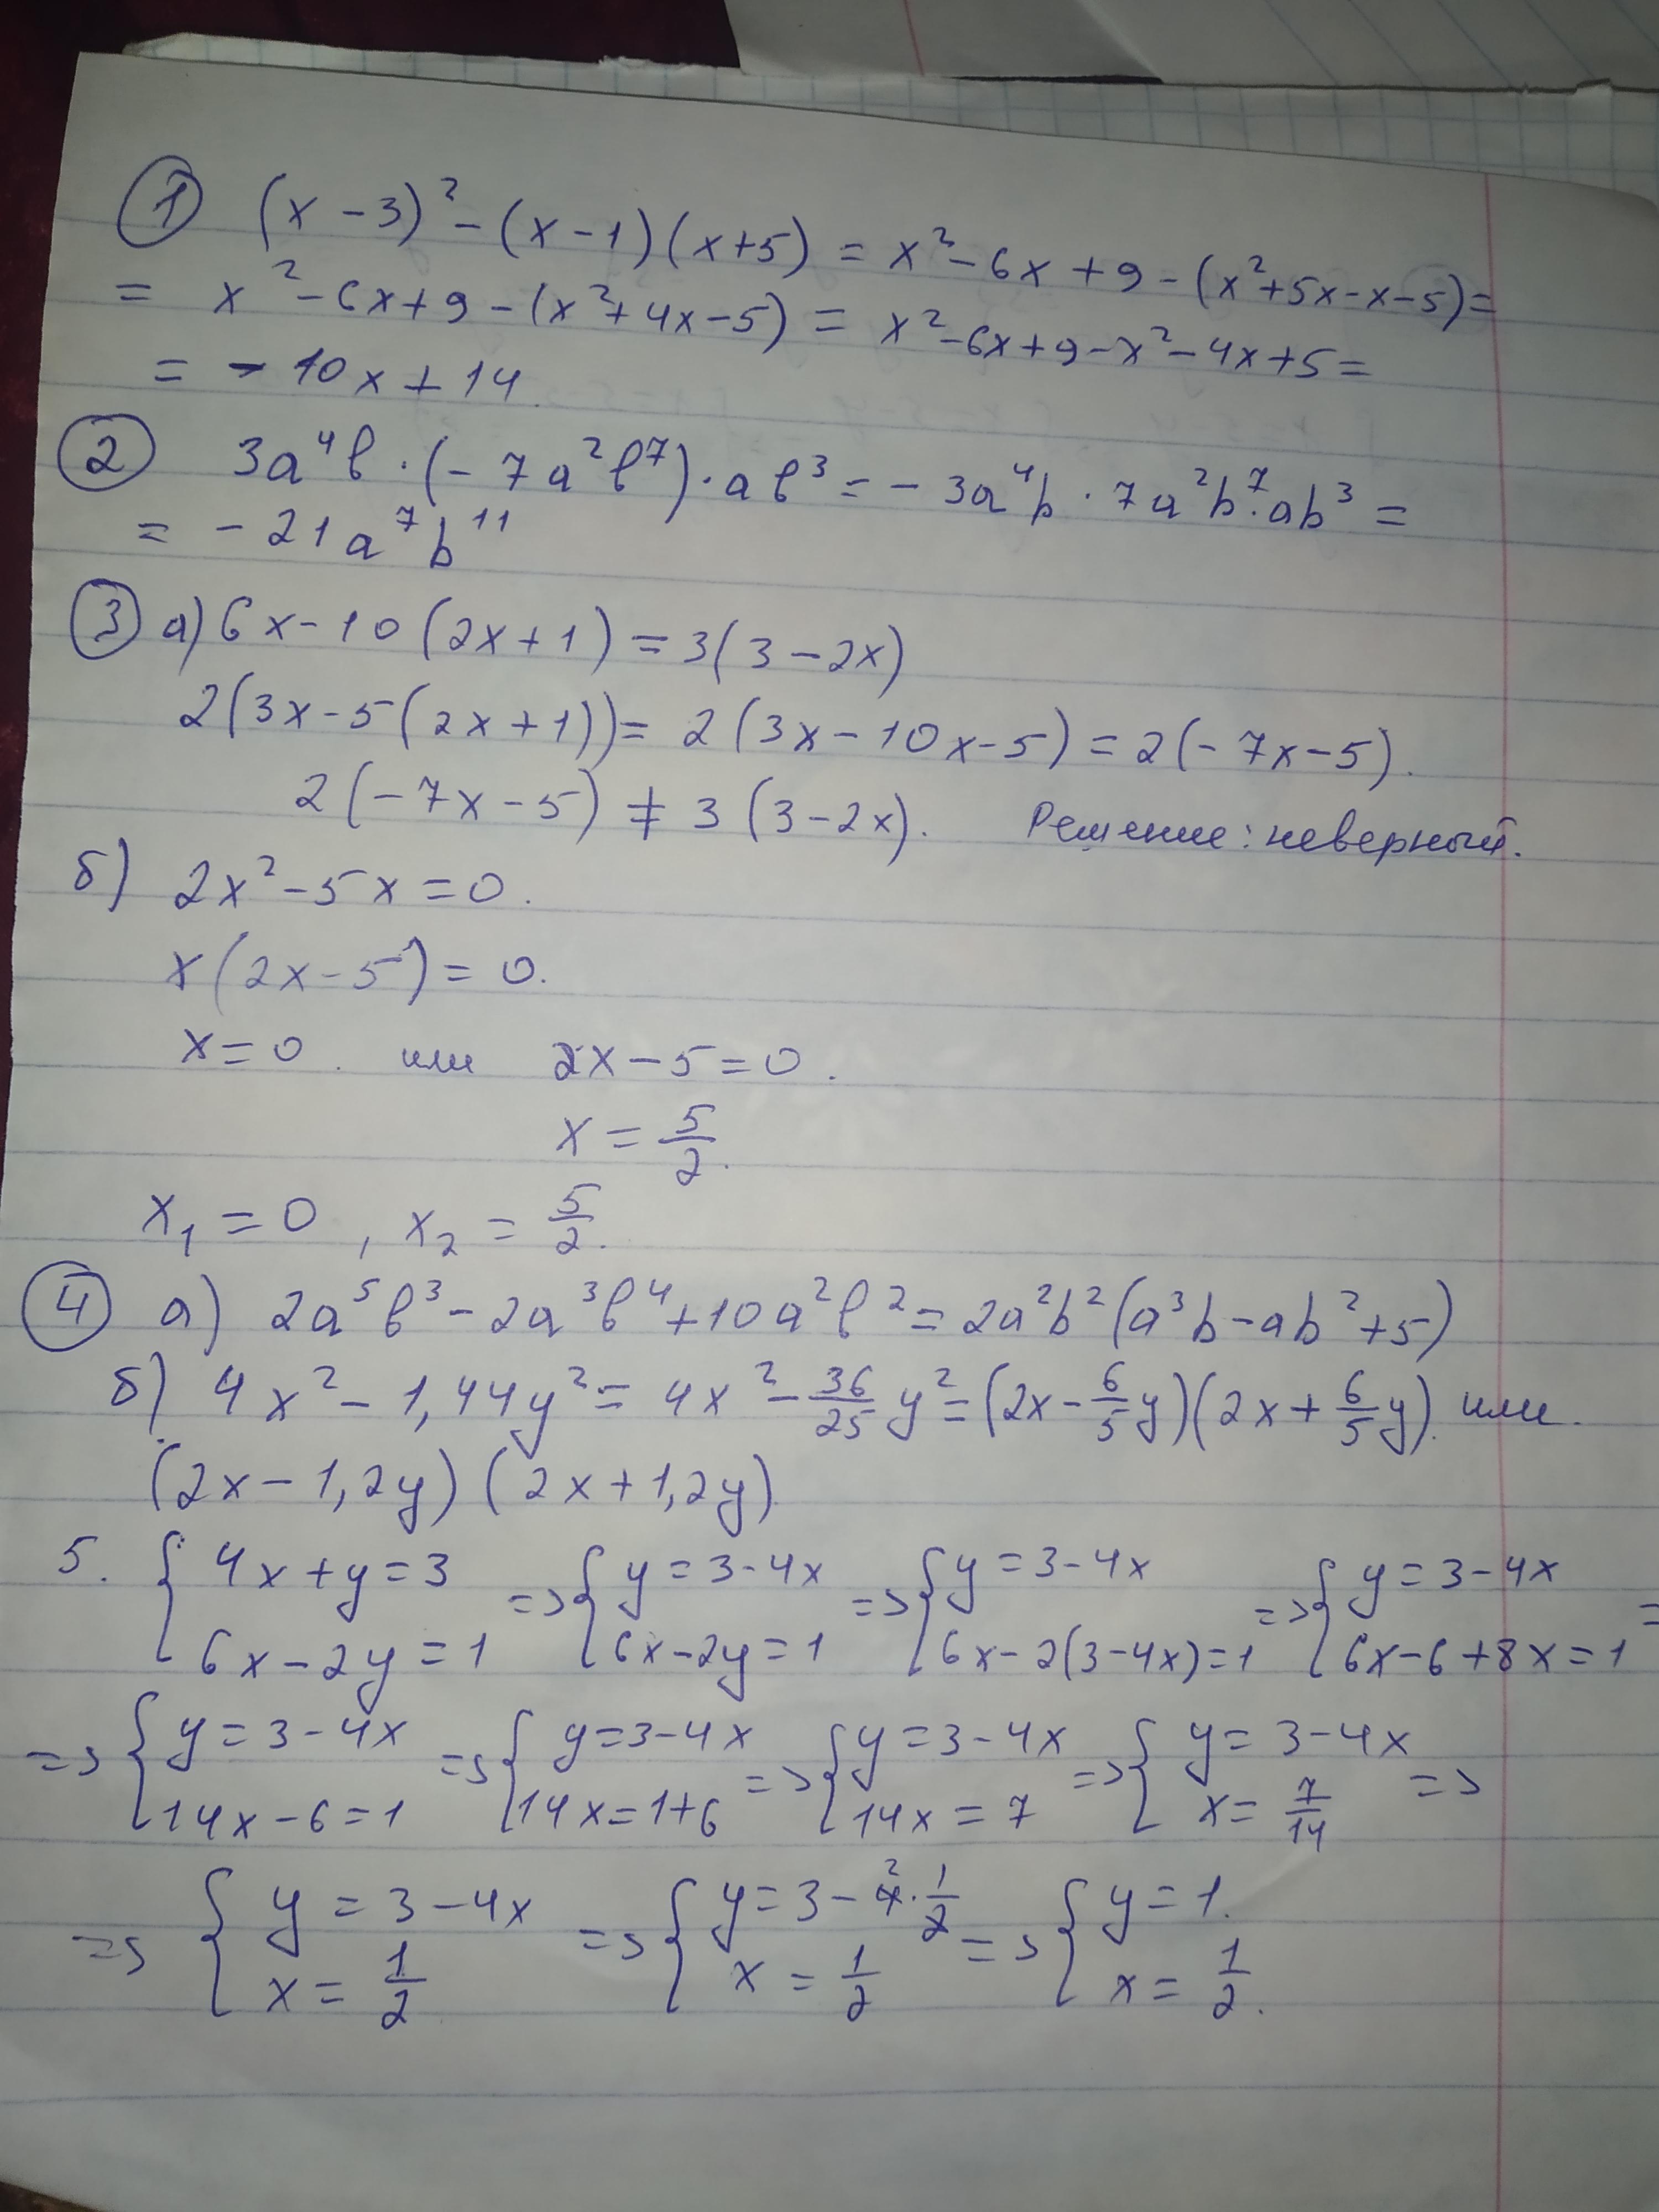 ① (x-3)² - (x-1)(x+5) = x² - 6x + 9 - (x²+5x-x-5) =
= x² - 6x + 9 - (x²+4x-5) = x² - 6x + 9 - x² - 4x + 5 =
= - 10x + 14.
② 3a⁴b · (-7a²b⁷) · ab³ = - 3a⁴b · 7a²b⁷ · ab³ =
= - 21a⁷b¹¹
③ а) 6x - 10(2x+1) = 3(3-2x)
2(3x-5(2x+1)) = 2(3x-10x-5) = 2(-7x-5).
2(-7x-5) ≠ 3(3-2x). Решение: неверный.
б) 2x² - 5x = 0.
x(2x-5) = 0.
x = 0. или 2x - 5 = 0.
x = 5/2.
x₁ = 0, x₂ = 5/2.
④ а) 2a⁵b³ - 2a³b⁴ + 10a²b² = 2a²b²(a³b - ab² + 5)
б) 4x² - 1,44y² = 4x² - 36/25 y² = (2x - 6/5 y)(2x + 6/5 y). или.
(2x - 1,2y)(2x + 1,2y)
5. { 4x+y=3 6x-2y=1 => { y=3-4x 6x-2y=1 => { y=3-4x 6x-2(3-4x)=1 => { y=3-4x 6x-6+8x=1 =
=> { y=3-4x 14x-6=1 => { y=3-4x 14x=1+6 => { y=3-4x 14x=7 => { y=3-4x x=7/14 =>
=> { y=3-4x x=1/2 => { y=3-4²·1/2 x=1/2 => { y=1. x=1/2.